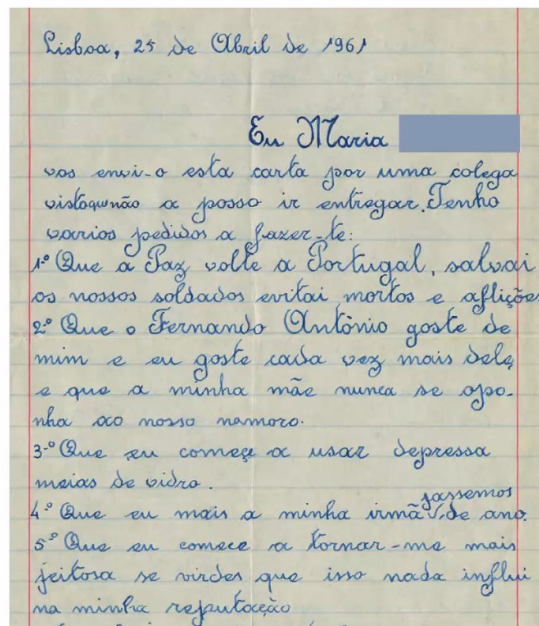 Lisboa, 25 de Abril de 1961
Eu Maria
vos envi-o esta carta por uma colega
vistoquenão a posso ir entregar. Tenho
varios pedidos a fazer-te:
1º Que a Paz volte a Portugal, salvai
os nossos soldados evitai mortos e aflições
2º Que o Fernando António goste de
mim e eu goste cada vez mais dele
e que a minha mãe nunca se opo-
nha ao nosso namoro.
3º Que eu começe a usar depressa
meias de vidro.
4º Que eu mais a minha irmã passemos de ano.
5º Que eu comece a tornar-me mais
jeitosa se virdes que isso nada influi
na minha reputação